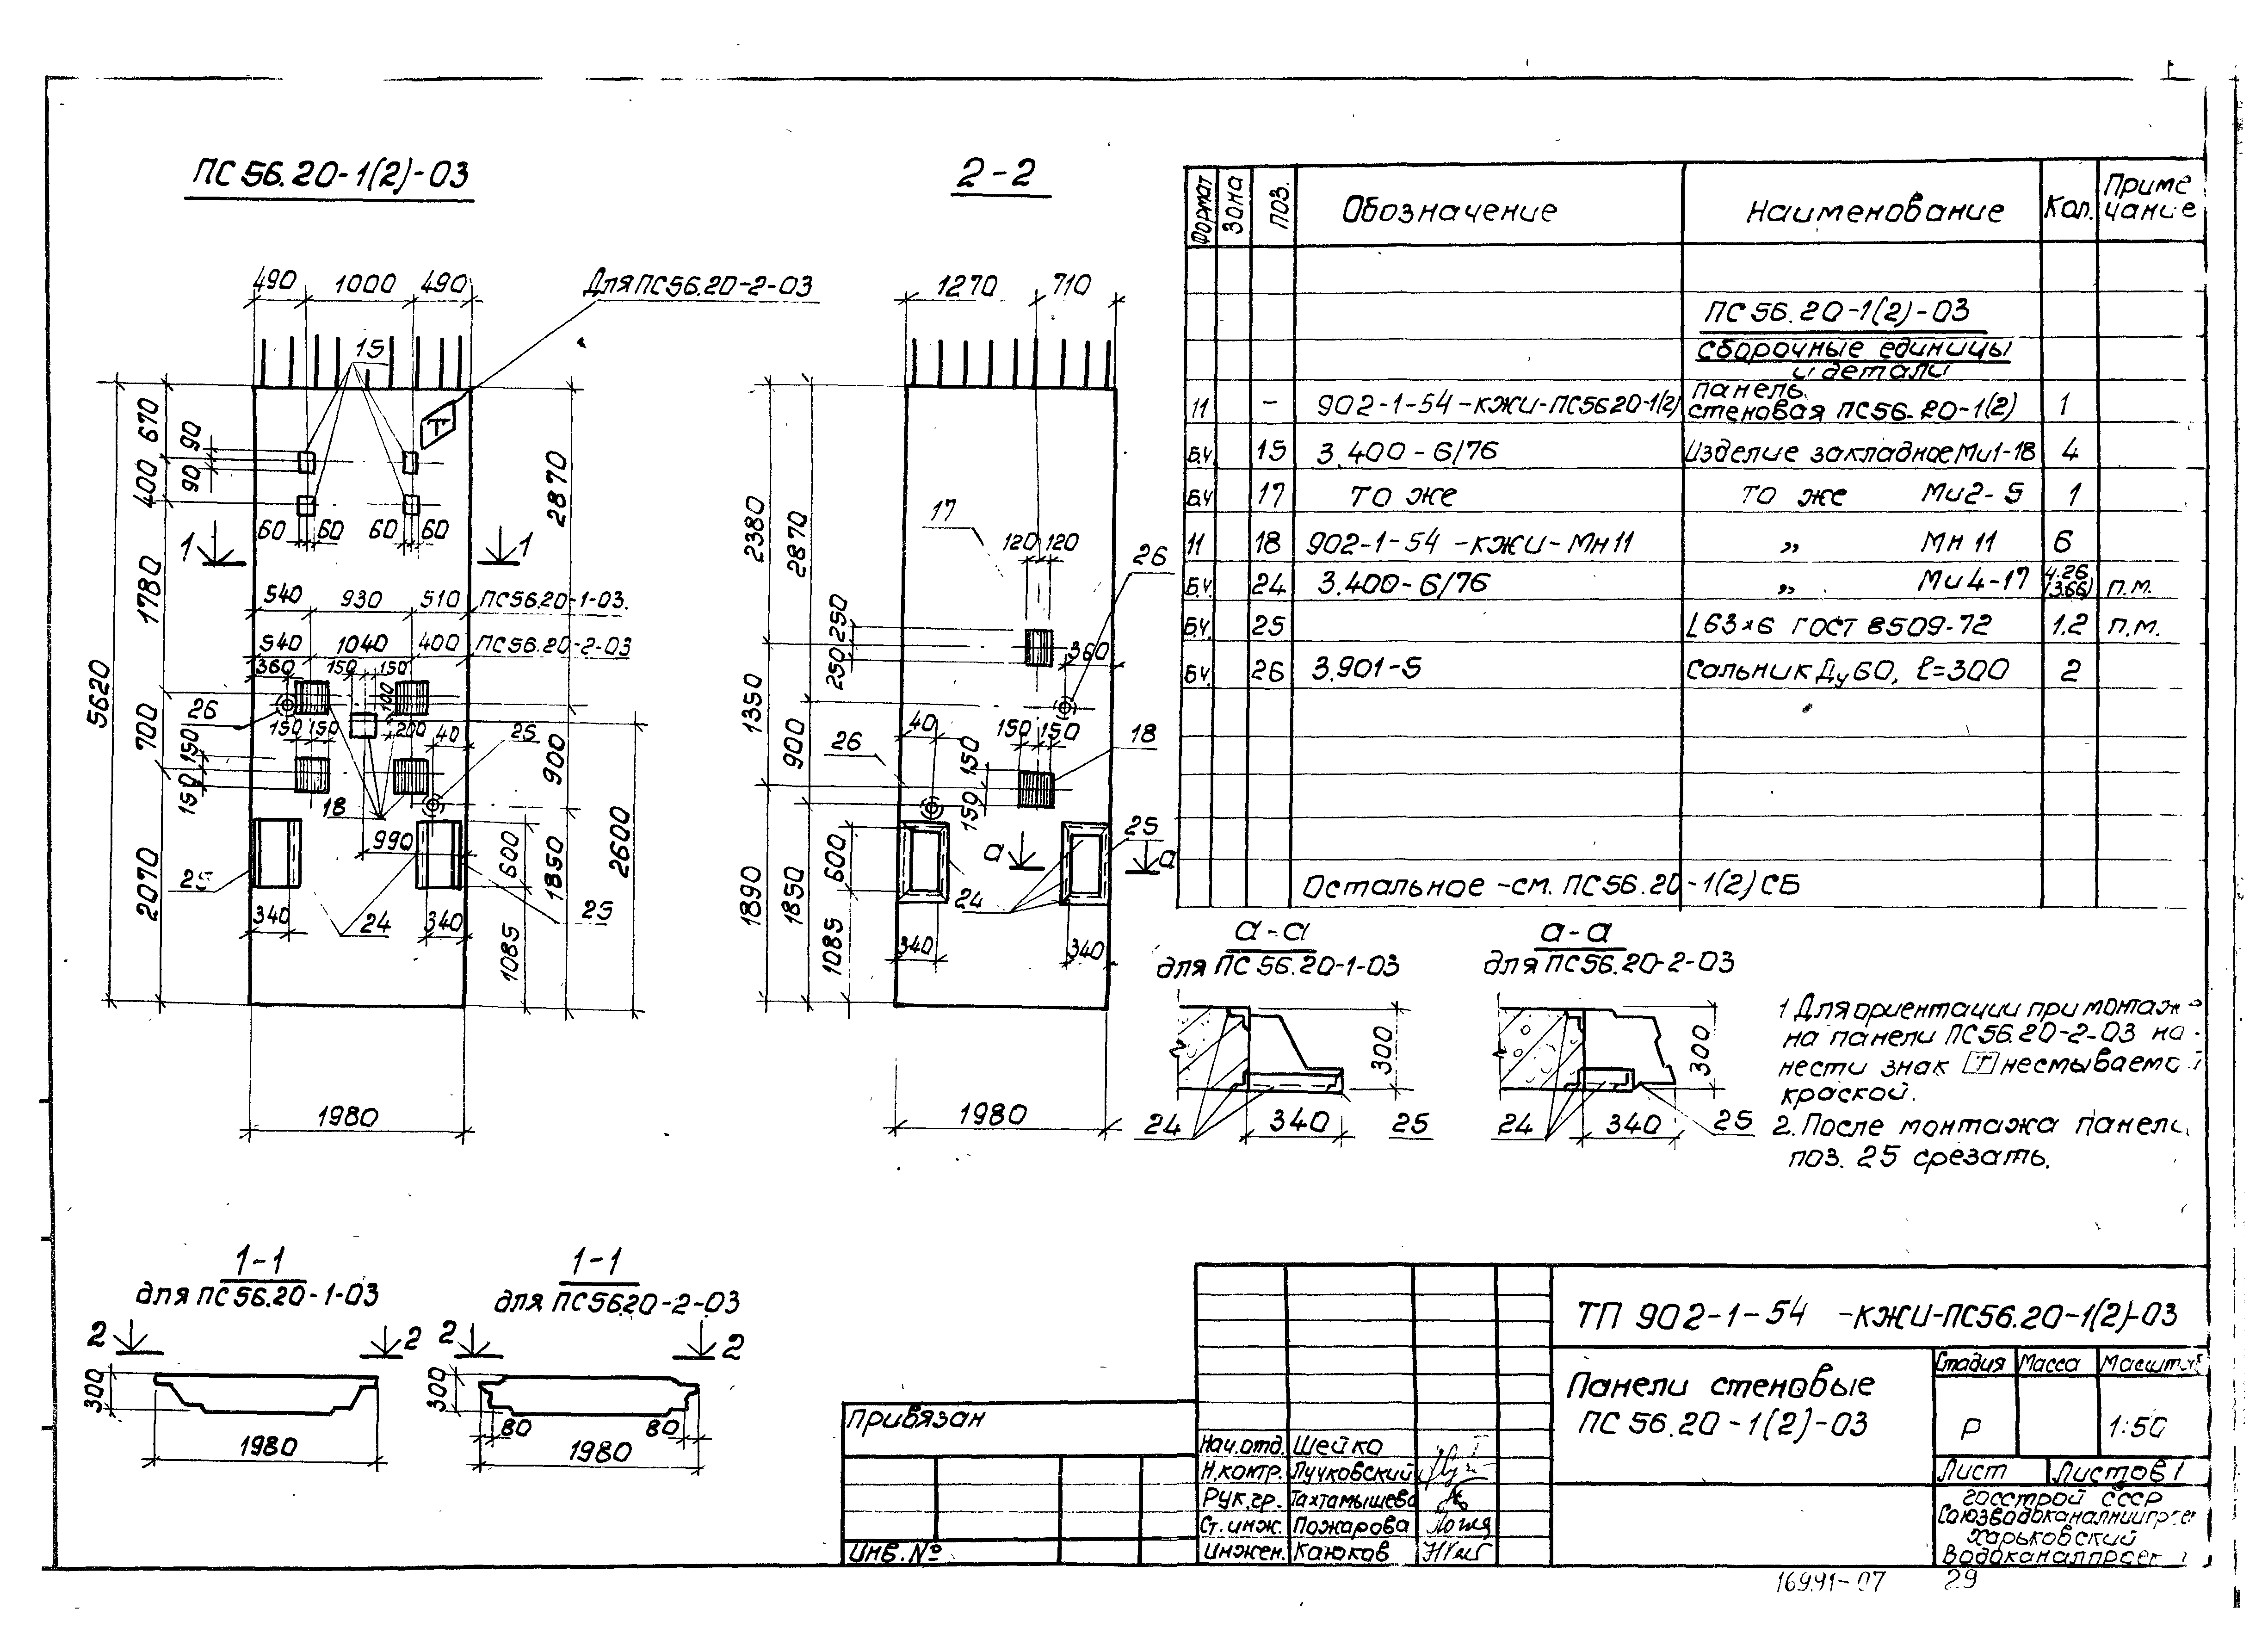 ПС 56.20-1(2)-03
490 1000 490
Для ПС56.20-2-03
15
Т
670
90
90
400
1780
700
2070
5620
2870
60 60 60 60
1 1
540 930 510 ПС56.20-1-03.
540 1040 400 ПС56.20-2-03
360 150 150
100
26
150 150 200 40 25
150
150
18
990
900
600
1850
2600
1085
25
340 24 340 25
1980
2-2
1270 710
2380
2870
17
120 120
26
250
250
360
1350
900
40
26
150 150
150
150
18
25
а а
600
1890
1850
1085
24
340 340
1980
Формат Зона Поз. Обозначение Наименование Кол. Приме
чание
ПС 56.20-1(2)-03
сборочные единицы
и детали
11 - 902-1-54-КЖИ-ПС5620-1(2) панель
стеновая ПС56.20-1(2) 1
Б.Ч. 15 3.400-6/76 Изделие закладное Ми1-18 4
Б.Ч. 17 то же то же Ми2-5 1
11 18 902-1-54-КЖИ-Мн11 „ Мн 11 6
Б.Ч. 24 3.400-6/76 „ Ми4-17 4.26
(3.66) п.м.
Б.Ч. 25 L63×6 ГОСТ 8509-72 1.2 п.м.
Б.Ч. 26 3.901-5 Сальник Ду60, ℓ=300 2
Остальное -см. ПС56.20-1(2)СБ
а-а
для ПС 56.20-1-03
300
24 340 25
а-а
для ПС56.20-2-03
300
24 340 25
1 Для ориентации при монтаж
на панели ПС56.20-2-03 на-
нести знак Т несмываемой
краской.
2. После монтажа панели
поз. 25 срезать.
1-1
для ПС 56.20-1-03
2 2
300
1980
1-1
для ПС5620-2-03
2 2
300
80 80
1980
ТП 902-1-54 -КЖИ-ПС56.20-1(2)-03
Панели стеновые
ПС 56.20-1(2)-03
Стадия Масса Масштаб
Р 1:50
Лист Листов 1
Госстрой СССР
Союзводоканалниипроек
Харьковский
Водоканалпроек
привязан
Инв.№
Нач.отд. Шейко
Н.контр. Пучковский
Рук.гр. Тахтамышева
Ст.инж. Пожарова
инжен. Каюков
16991-07 29